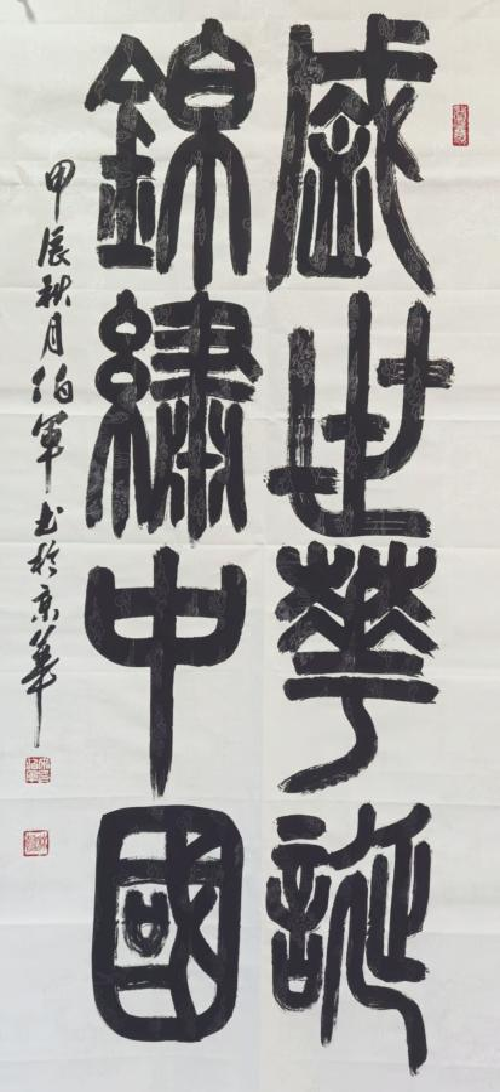 盛世華誕
錦繡中國
甲辰秋月 伯軍书於京華